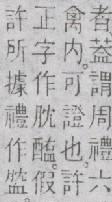 者蓋謂周禮六
禽內。可證也。許
正字作䏙醓。假
許所據禮作